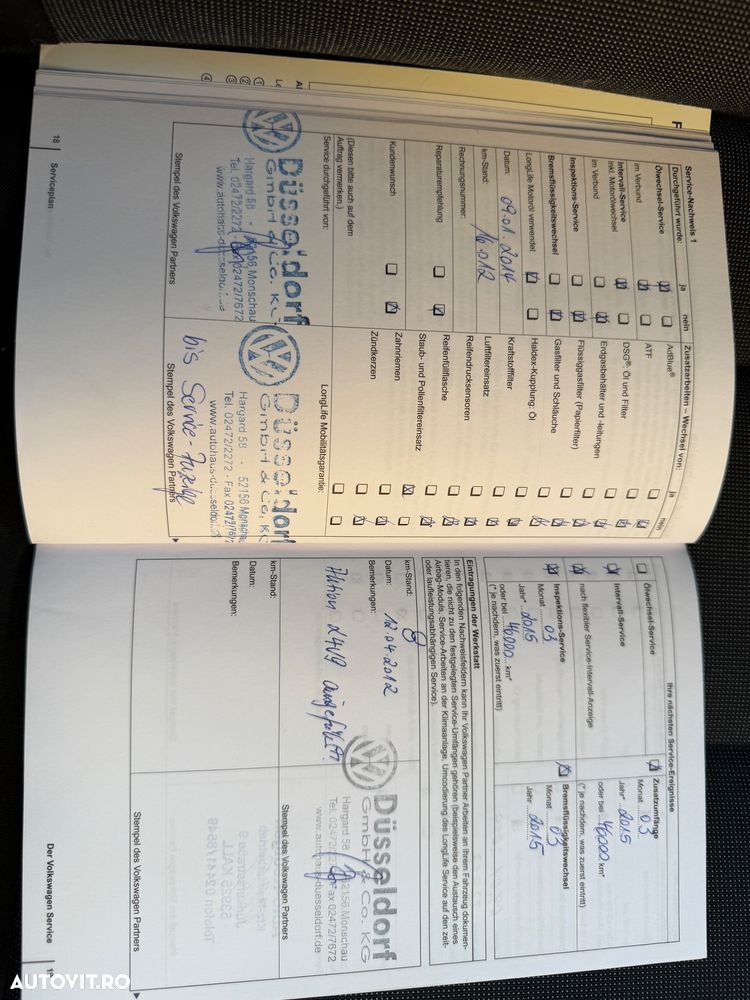 Service-Nachweis 1
Durchgeführt wurde:
ja
nein
Ölwechsel-Service
im Verbund
Intervall-Service
inkl. Motorölwechsel
im Verbund
Inspektions-Service
Bremsflüssigkeitswechsel
LongLife Motoröl verwendet
Datum: 09.01.2014
km-Stand: 16 012
Rechnungsnummer:
Reparaturempfehlung
Kundenwunsch
(Diesen bitte auch auf dem
Auftrag vermerken.)
Service durchgeführt von:
Düsseldorf
GmbH & Co. KG
Hargard 58 - 52156 Monschau
Tel. 02472/2272 - Fax 02472/7672
Stempel des Volkswagen Partners
Zusatzarbeiten – Wechsel von:
ja
nein
AdBlue®
ATF
DSG®: Öl und Filter
Erdgasbehälter und -leitungen
Flüssiggasfilter (Papierfilter)
Gasfilter und Schläuche
Haldex-Kupplung: Öl
Kraftstofffilter
Luftfiltereinsatz
Reifendrucksensoren
Reifenfüllflasche
Staub- und Pollenfiltereinsatz
Zahnriemen
Zündkerzen
LongLife Mobilitätsgarantie:
Düsseldorf
GmbH & Co. KG
Hargard 58 - 52156 Monschau
Tel. 02472/2272 - Fax 02472/7672
bis Service-
Stempel des Volkswagen Partners
18
Serviceplan
Ihre nächsten Service-Ereignisse
Ölwechsel-Service
Intervall-Service
nach flexibler Service-Intervall-Anzeige
Inspektions-Service
Monat 03
Jahr* 2015
oder bei 46000 km*
(* je nachdem, was zuerst eintritt)
Zusatzumfänge
Monat 03
Jahr* 2015
oder bei 46000 km*
(* je nachdem, was zuerst eintritt)
Bremsflüssigkeitswechsel
Monat 03
Jahr 2015
Eintragungen der Werkstatt
In den folgenden Nachweisfeldern kann Ihr Volkswagen Partner Arbeiten an Ihrem Fahrzeug dokumen-
tieren, die nicht zu den festgelegten Service-Umfängen gehören (beispielsweise den Austausch eines
Airbag-Moduls, Service-Arbeiten an der Klimaanlage, Umcodierung des LongLife Service auf den zeit-
oder laufleistungsabhängigen Service).
km-Stand: 8
Datum: 12.04.2012
Bemerkungen:
Aktion 24V9 ausgeführt
Düsseldorf
GmbH & Co. KG
Hargard 58 - 52156 Monschau
Tel. 02472/2272 - Fax 02472/7672
www.autohausduesseldorf.de
Stempel des Volkswagen Partners
km-Stand:
Datum:
Bemerkungen:
Stempel des Volkswagen Partners
Der Volkswagen Service
AUTOVIT.RO